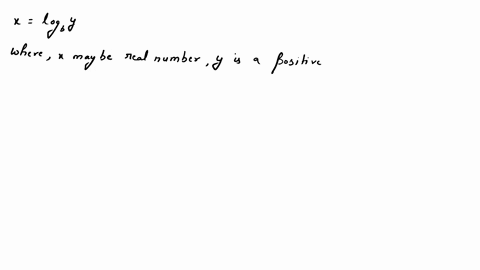 x = log_b y
where, x may be real number, y is a positive